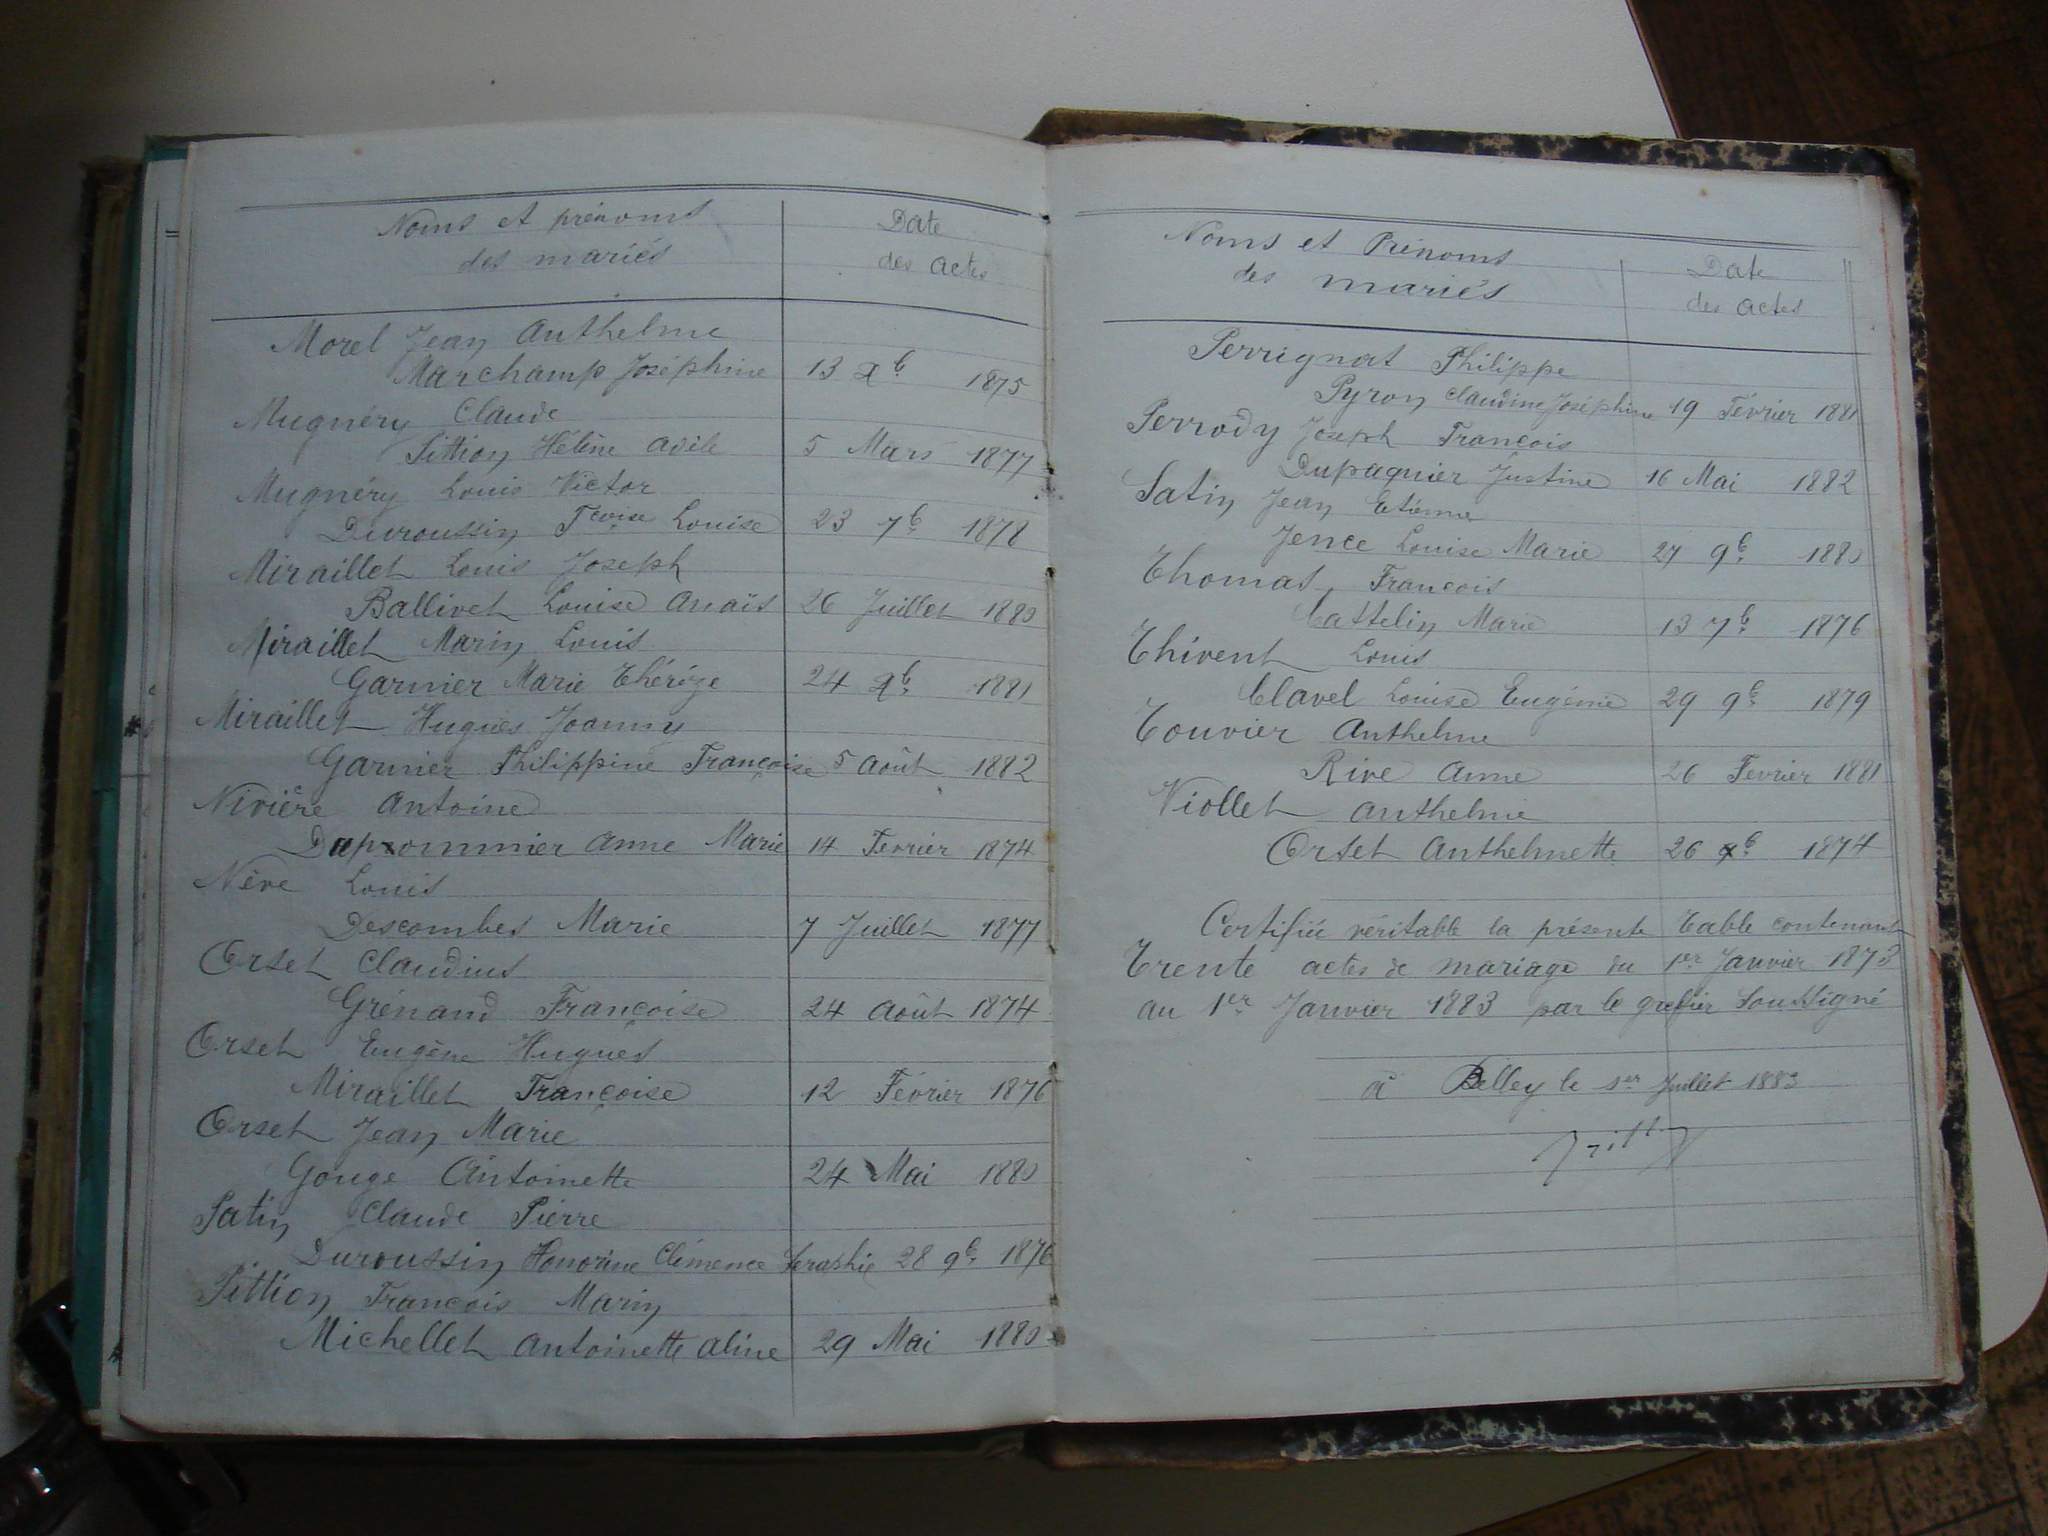 Noms et prénoms
des mariés
Date
des actes
Morel Jean Anthelme
Marchamp Joséphine 13 Xb. 1875
Mugnéry Claude
Pittion Hélène Adèle 5 Mars 1877
Mugnéry Louis Victor
Duroussin Fcoise Louise 23 7b. 1878
Miraillet Louis Joseph
Ballivet Louise Anaïs 26 Juillet 1880
Miraillet Marin Louis
Garnier Marie Thérèze 24 Xb. 1881
Miraillet Hugues Joanny
Garnier Philippine Françoise 5 Août 1882
Nivière Antoine
Duprommier Anne Marie 14 Fevrier 1874
Nève Louis
Descombes Marie 7 Juillet 1877
Orset Claudius
Grénand Françoise 24 Août 1874
Orset Eugène Hugues
Miraillet Françoise 12 Février 1876
Orset Jean Marie
Gouge Antoinette 24 Mai 1880
Patin Claude Pierre
Duroussin Honorine Clémence Seraphie 28 9b. 1876
Pittion François Marin
Michellet Antoinette Aline 29 Mai 1880
Noms et Prénoms
des mariés
Date
des actes
Perrignat Philippe
Pyron Claudine Joséphine 19 Février 1881
Perrody Joseph François
Dupaquier Justine 16 Mai 1882
Patin Jean Etienne
Jence Louise Marie 27 9b. 1880
Thomas François
Cattelin Marie 13 7b. 1876
Thivent Louis
Clavel Louise Eugénie 29 9b. 1879
Touvier Anthelme
Rive Anne 26 Fevrier 1881
Viollet Anthelme
Orset Anthelmette 26 Xb. 1874
Certifiée véritable la présente table contenant
Trente actes de mariage du 1er Janvier 1873
au 1er Janvier 1883 par le grefier Soussigné
à Belley le 1er Juillet 1883